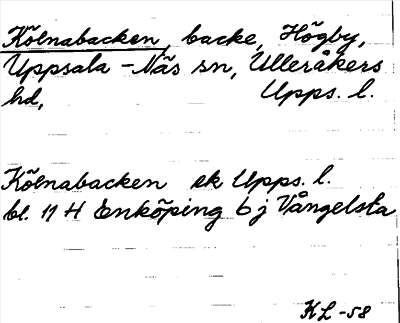 Kölnabacken, backe, Högby,
Uppsala-Näs sn, Ulleråkers
hd, Upps. l.
Kölnabacken ek Upps. l.
bl. 11 H Enköping 6 j Vångelsta
KL-58